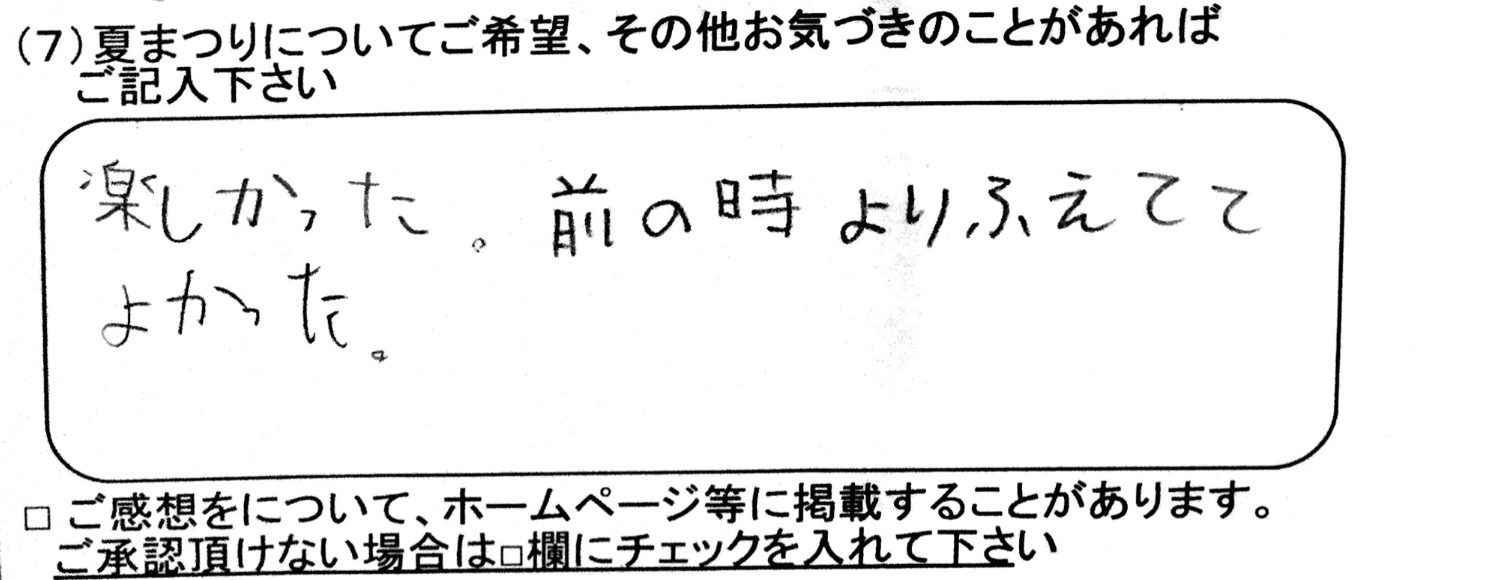 (7)夏まつりについてご希望、その他お気づきのことがあれば
ご記入下さい
楽しかった。前の時よりふえてて
よかった。
□ ご感想をについて、ホームページ等に掲載することがあります。
ご承認頂けない場合は□欄にチェックを入れて下さい